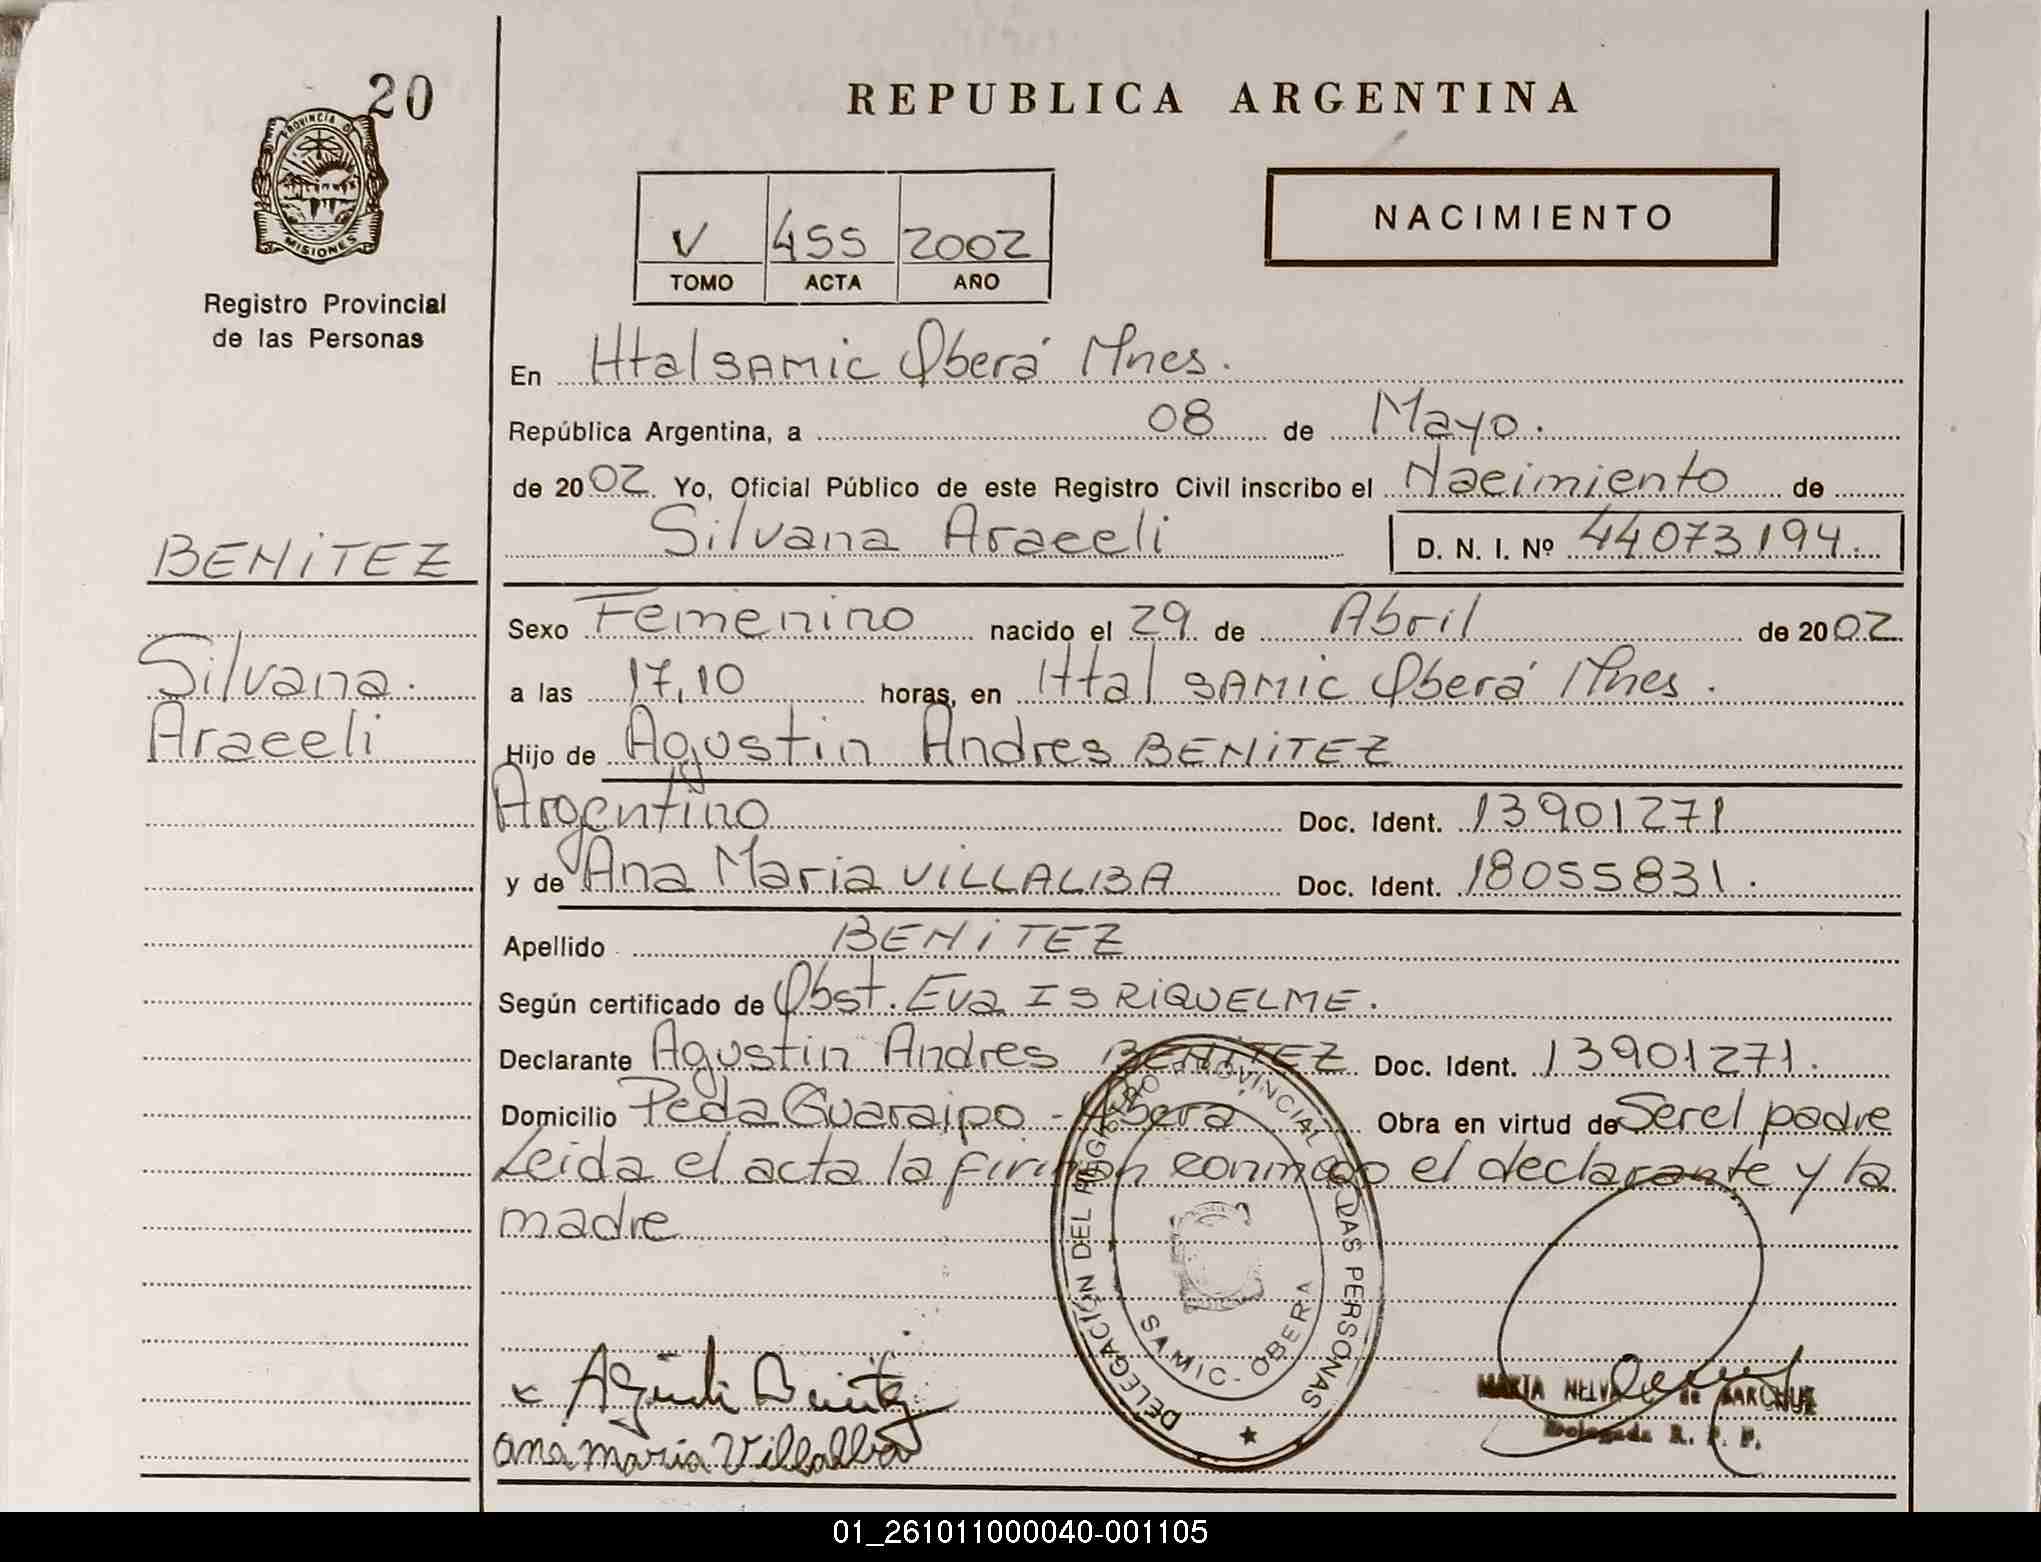 20
PROVINCIA DE
MISIONES
Registro Provincial
de las Personas
BENITEZ
Silvana
Araceli
REPUBLICA ARGENTINA
V 455 2002
TOMO ACTA AÑO
NACIMIENTO
En Htal SAMIC Oberá Mnes.
República Argentina, a 08 de Mayo.
de 2002. Yo, Oficial Público de este Registro Civil inscribo el Nacimiento de
Silvana Araceli D. N. I. Nº 44073194.
Sexo Femenino nacido el 29 de Abril de 2002
a las 17,10 horas, en Htal SAMIC Oberá Mnes.
Hijo de Agustin Andres BENITEZ
Argentino Doc. Ident. 13901271
y de Ana Maria VILLALBA Doc. Ident. 18055831.
Apellido BENITEZ
Según certificado de Obst. Eva IS RIQUELME.
Declarante Agustin Andres BENITEZ Doc. Ident. 13901271.
Domicilio Pcda Guaraipo - Oberá Obra en virtud de Ser el padre
Leida el acta la firman conmigo el declarante y la
madre
DELEGACIÓN DEL REGISTRO PROVINCIAL DE LAS PERSONAS
SAMIC - OBERA
Benitez
Ana Maria Villalba
MARIA NELVA de
Delegada R. P. P.
01_261011000040-001105